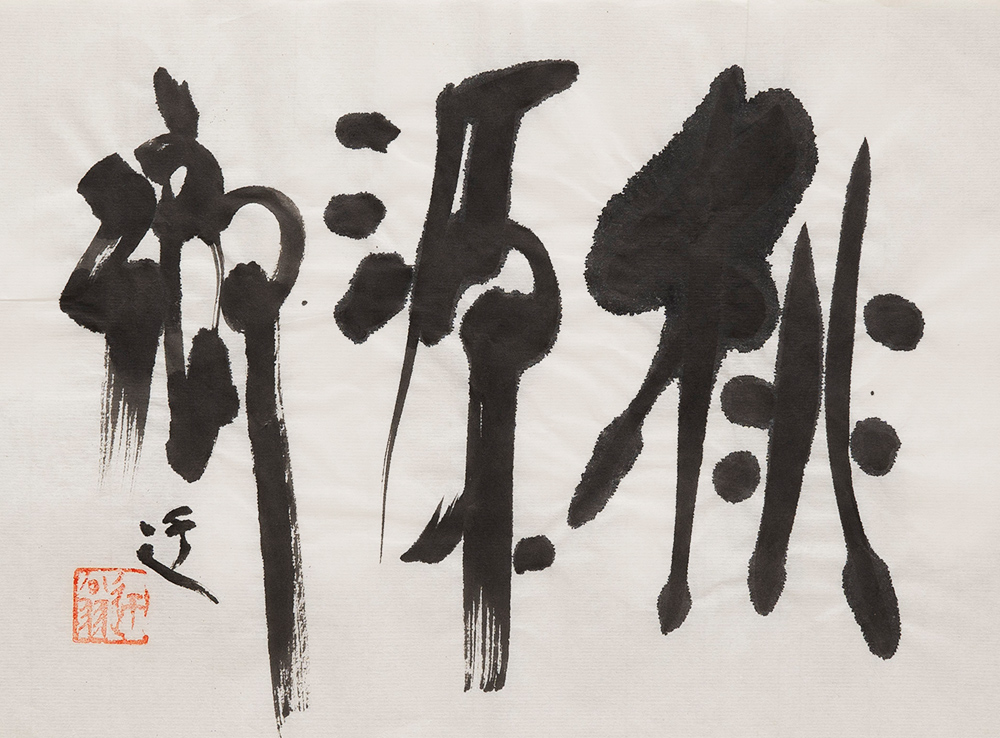 桃源郷
迂